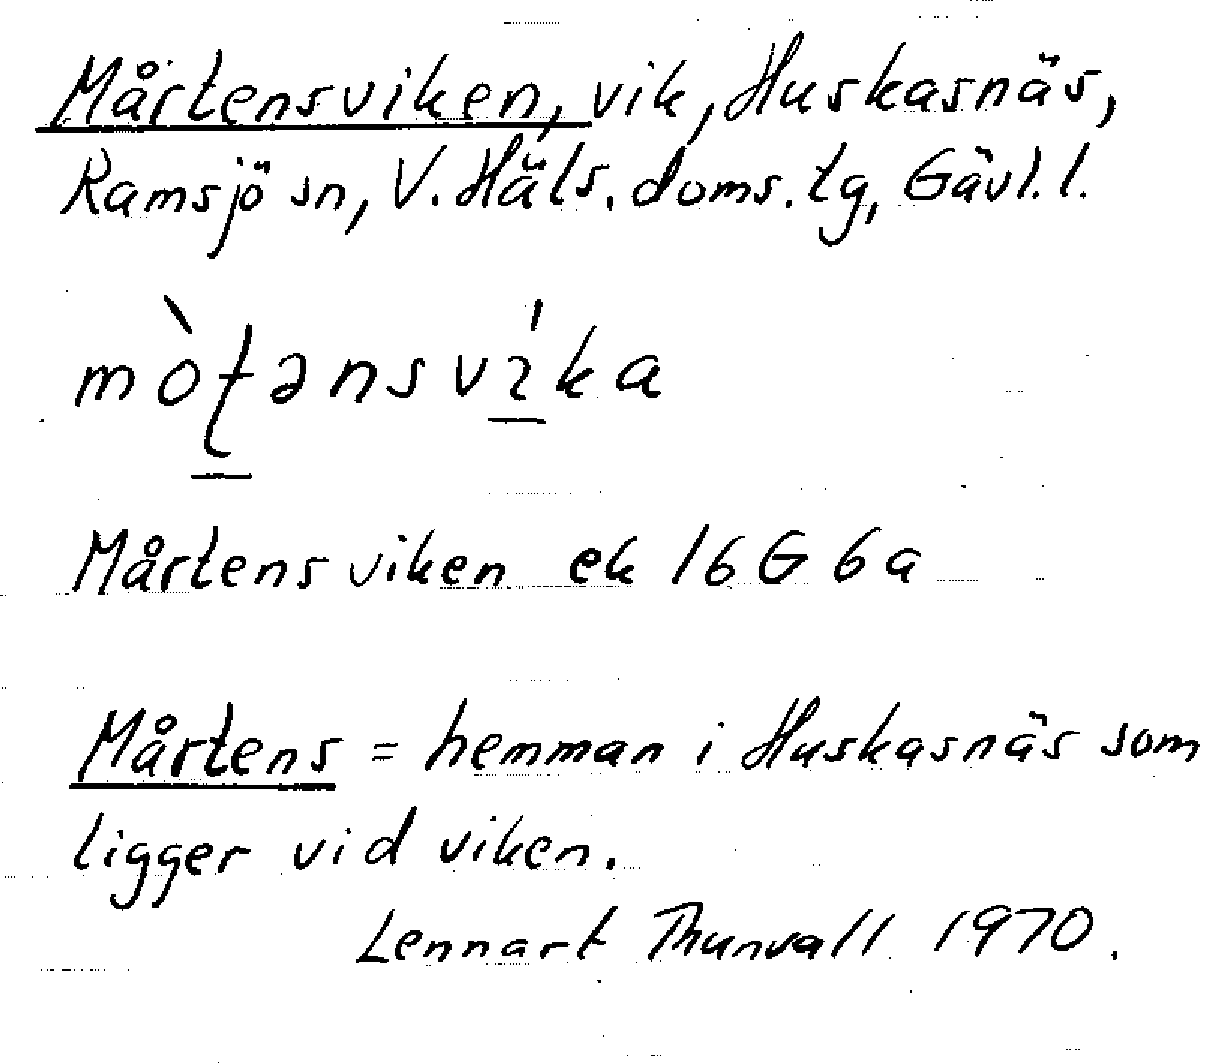 Mårtensviken, vik, Huskasnäs,
Ramsjö sn, V. Häls. doms. tg, Gävl. l.
mòʈənsvı̍ka
Mårtensviken ek 16G 6a
Mårtens = hemman i Huskasnäs som
ligger vid viken.
Lennart Thunvall 1970.